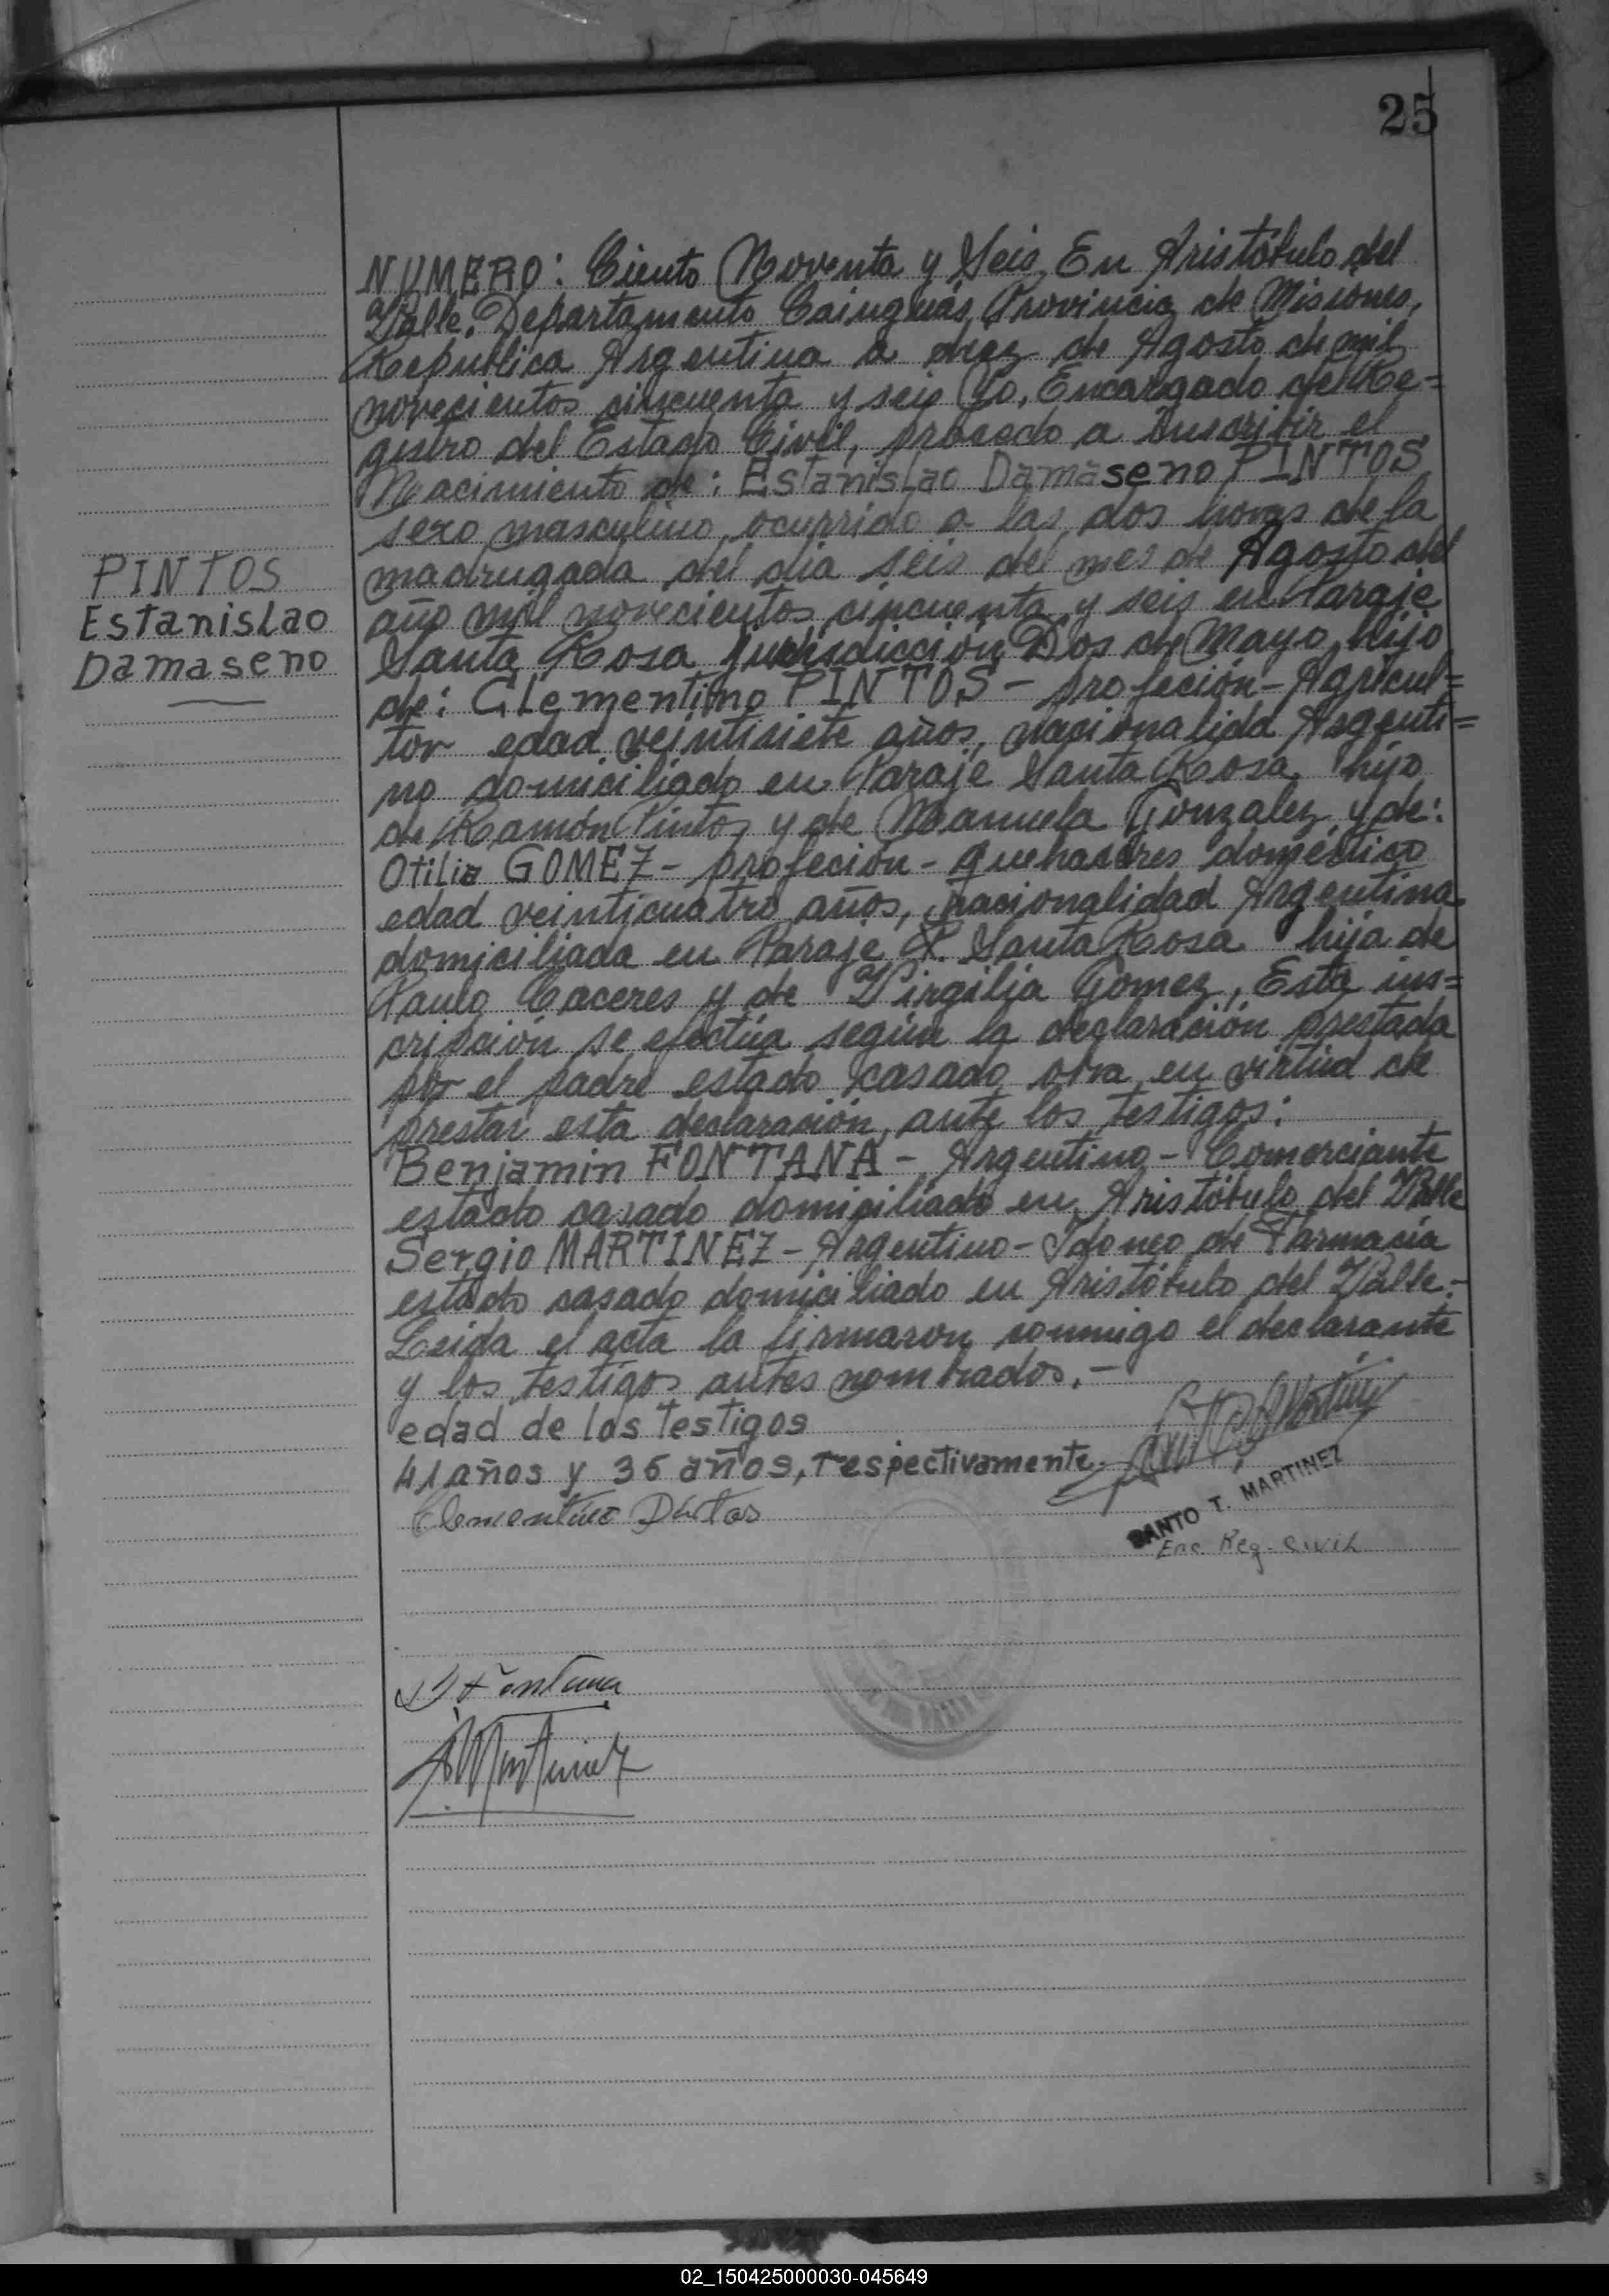 25
NUMERO: Ciento Noventa y Seis, En Aristóbulo del
Valle, Departamento Cainguás, Provincia de Misiones,
República Argentina a diez de Agosto de mil
novecientos cincuenta y seis Yo, Encargado del Re=
gistro del Estado Civil, procedo a Inscribir el
Nacimiento de: Estanislao Damaseno PINTOS
sexo masculino, ocurrido a las dos horas de la
madrugada del día seis del mes de Agosto del
año mil novecientos cincuenta y seis en Paraje
Santa Rosa jurisdicción Dos de Mayo, hijo
de: Clementino PINTOS - profeción - Agricul=
tor edad veintisiete años, nacionalida Argenti=
no domiciliado en Paraje Santa Rosa hijo
de Ramón Pintos y de Manuela Gonzalez y de:
Otilia GOMEZ - profeción - quehaceres doméstico
edad veinticuatro años, nacionalidad Argentina
domiciliada en Paraje Santa Rosa hija de
Paulo Caceres y de Virgilia Gomez, Esta ins=
cripción se efectúa según la declaración prestada
por el padre estado casado obra en virtud de
prestar esta declaración, ante los testigos:
Benjamin FONTANA - Argentino - Comerciante
estado casado domiciliado en Aristóbulo del Valle
Sergio MARTINEZ - Argentino - Idoneo de Farmacia
estado casado domiciliado en Aristóbulo del Valle.-
Leida el acta la firmaron conmigo el declarante
y los testigos antes nombrados.-
edad de los testigos
41 años y 36 años, respectivamente.
Clementino Pintos
SANTO T. MARTINEZ
Enc Reg. Civil
Fontana
Martinez
PINTOS
Estanislao
Damaseno
02_150425000030-045649